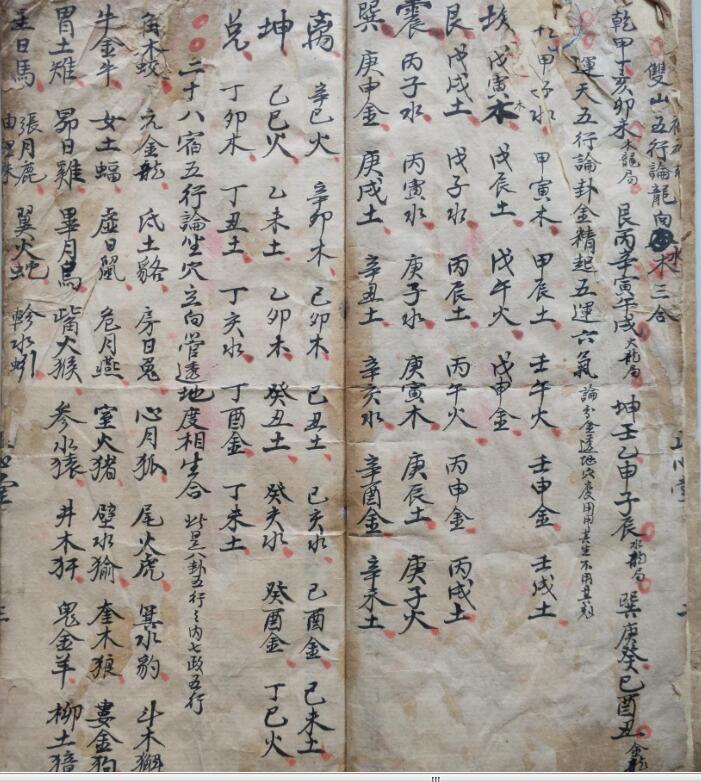 雙山五行論龍向水木三合
乾甲丁亥卯未木龍局 艮丙辛寅午戌火龍局 坤壬乙申子辰水龍局 巽庚癸巳酉丑金龍
運天五行論卦金精起五運六氣 論分金透地穴度用用其生不用其剋
甲子水 甲寅木 甲辰土 壬午火 壬申金 壬戌土
坎 戊寅木 戊辰土 戊午火 戊申金
艮 戊戌土 戊子水 丙辰土 丙午火 丙申金 丙戌土
震 丙子水 丙寅水 庚子水 庚寅木 庚辰土 庚子火
巽 庚申金 庚戌土 辛丑土 辛亥水 辛酉金 辛未土
離 辛巳火 辛卯木 己卯木 己丑土 己亥水 己酉金 己未土
坤 己巳火 乙未土 乙卯木 癸丑土 癸亥水 癸酉金 丁巳火
兌 丁卯木 丁丑土 丁亥水 丁酉金 丁未土
二十八宿五行論坐穴立向管透地度相生合 此是八卦五行之内七政五行
角木蛟 亢金龍 氐土貉 房日兔 心月狐 尾火虎 箕水豹 斗木獬
牛金牛 女土蝠 虛日鼠 危月燕 室火猪 壁水㺄 奎木狼 婁金狗
胃土雉 昴日雞 畢月烏 觜火猴 参水猿 井木犴 鬼金羊 柳土獐
星日馬 張月鹿 翼火蛇 軫水蚓